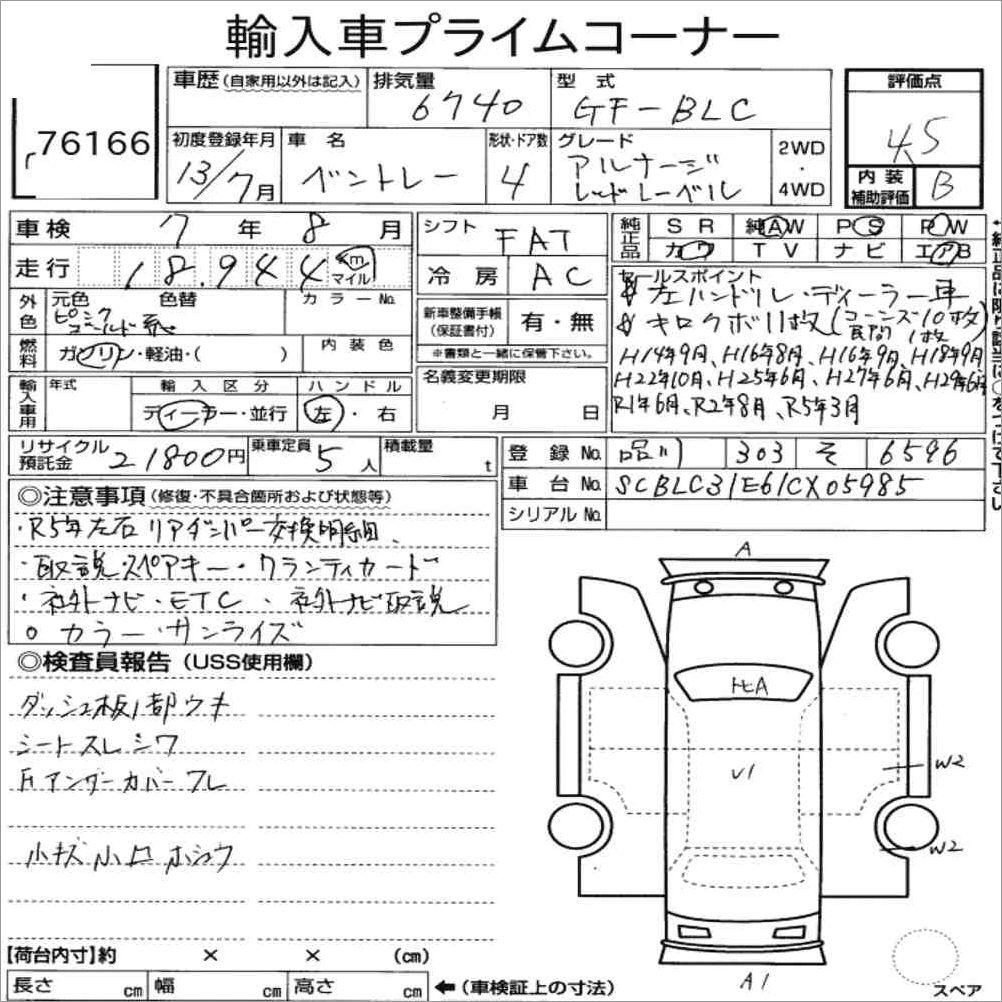 輸入車プライムコーナー
76166
車歴(自家用以外は記入) 排気量 6740 型式 GF-BLC 評価点 4.5
初度登録年月 13/7月 車名 ベントレー 形状・ドア数 4 グレード アルナージ レッドレーベル 2WD・4WD 内装補助評価 B
車検 7年 8月 シフト FAT 純正品 SR 純AW PS PW
走行 18,944 km マイル 冷房 AC カワ TV ナビ エアB
外色 元色 色替 カラーNo.
新車整備手帳(保証書付) 有・無
※書類と一緒に保管下さい。
セールスポイント
左ハンドル・ディーラー車
キロクボ11枚(コーンズ10枚 民間1枚)
H14年9月、H16年8月、H16年9月、H18年9月
H22年10月、H25年6月、H27年6月、H29年6月
R1年6月、R2年8月、R5年3月
燃料 ガソリン・軽油・( ) 内装色
名義変更期限 月 日
輸入車用 年式 輸入区分 ディーラー・並行 ハンドル 左・右
リサイクル預託金 21800円 乗車定員 5人 積載量 t
登録No. 品川 303 そ 6596
車台No. SCBLC31E61CX05985
シリアルNo.
◎注意事項(修復・不具合箇所および状態等)
・R5年左右リアダンパー交換明細、
・取説・スペアキー・ワランティカード
・社外ナビ・ETC・社外ナビ取説
○カラー・サンライズ
◎検査員報告(USS使用欄)
ダッシュ板1部ウキ
シートスレシワ
Fアンダーカバーワレ
小キズ小凹ホシュウ
A
U1
W2
W2
A1
スペア
【荷台内寸】約 × × (cm)
長さ cm 幅 cm 高さ cm ←(車検証上の寸法)